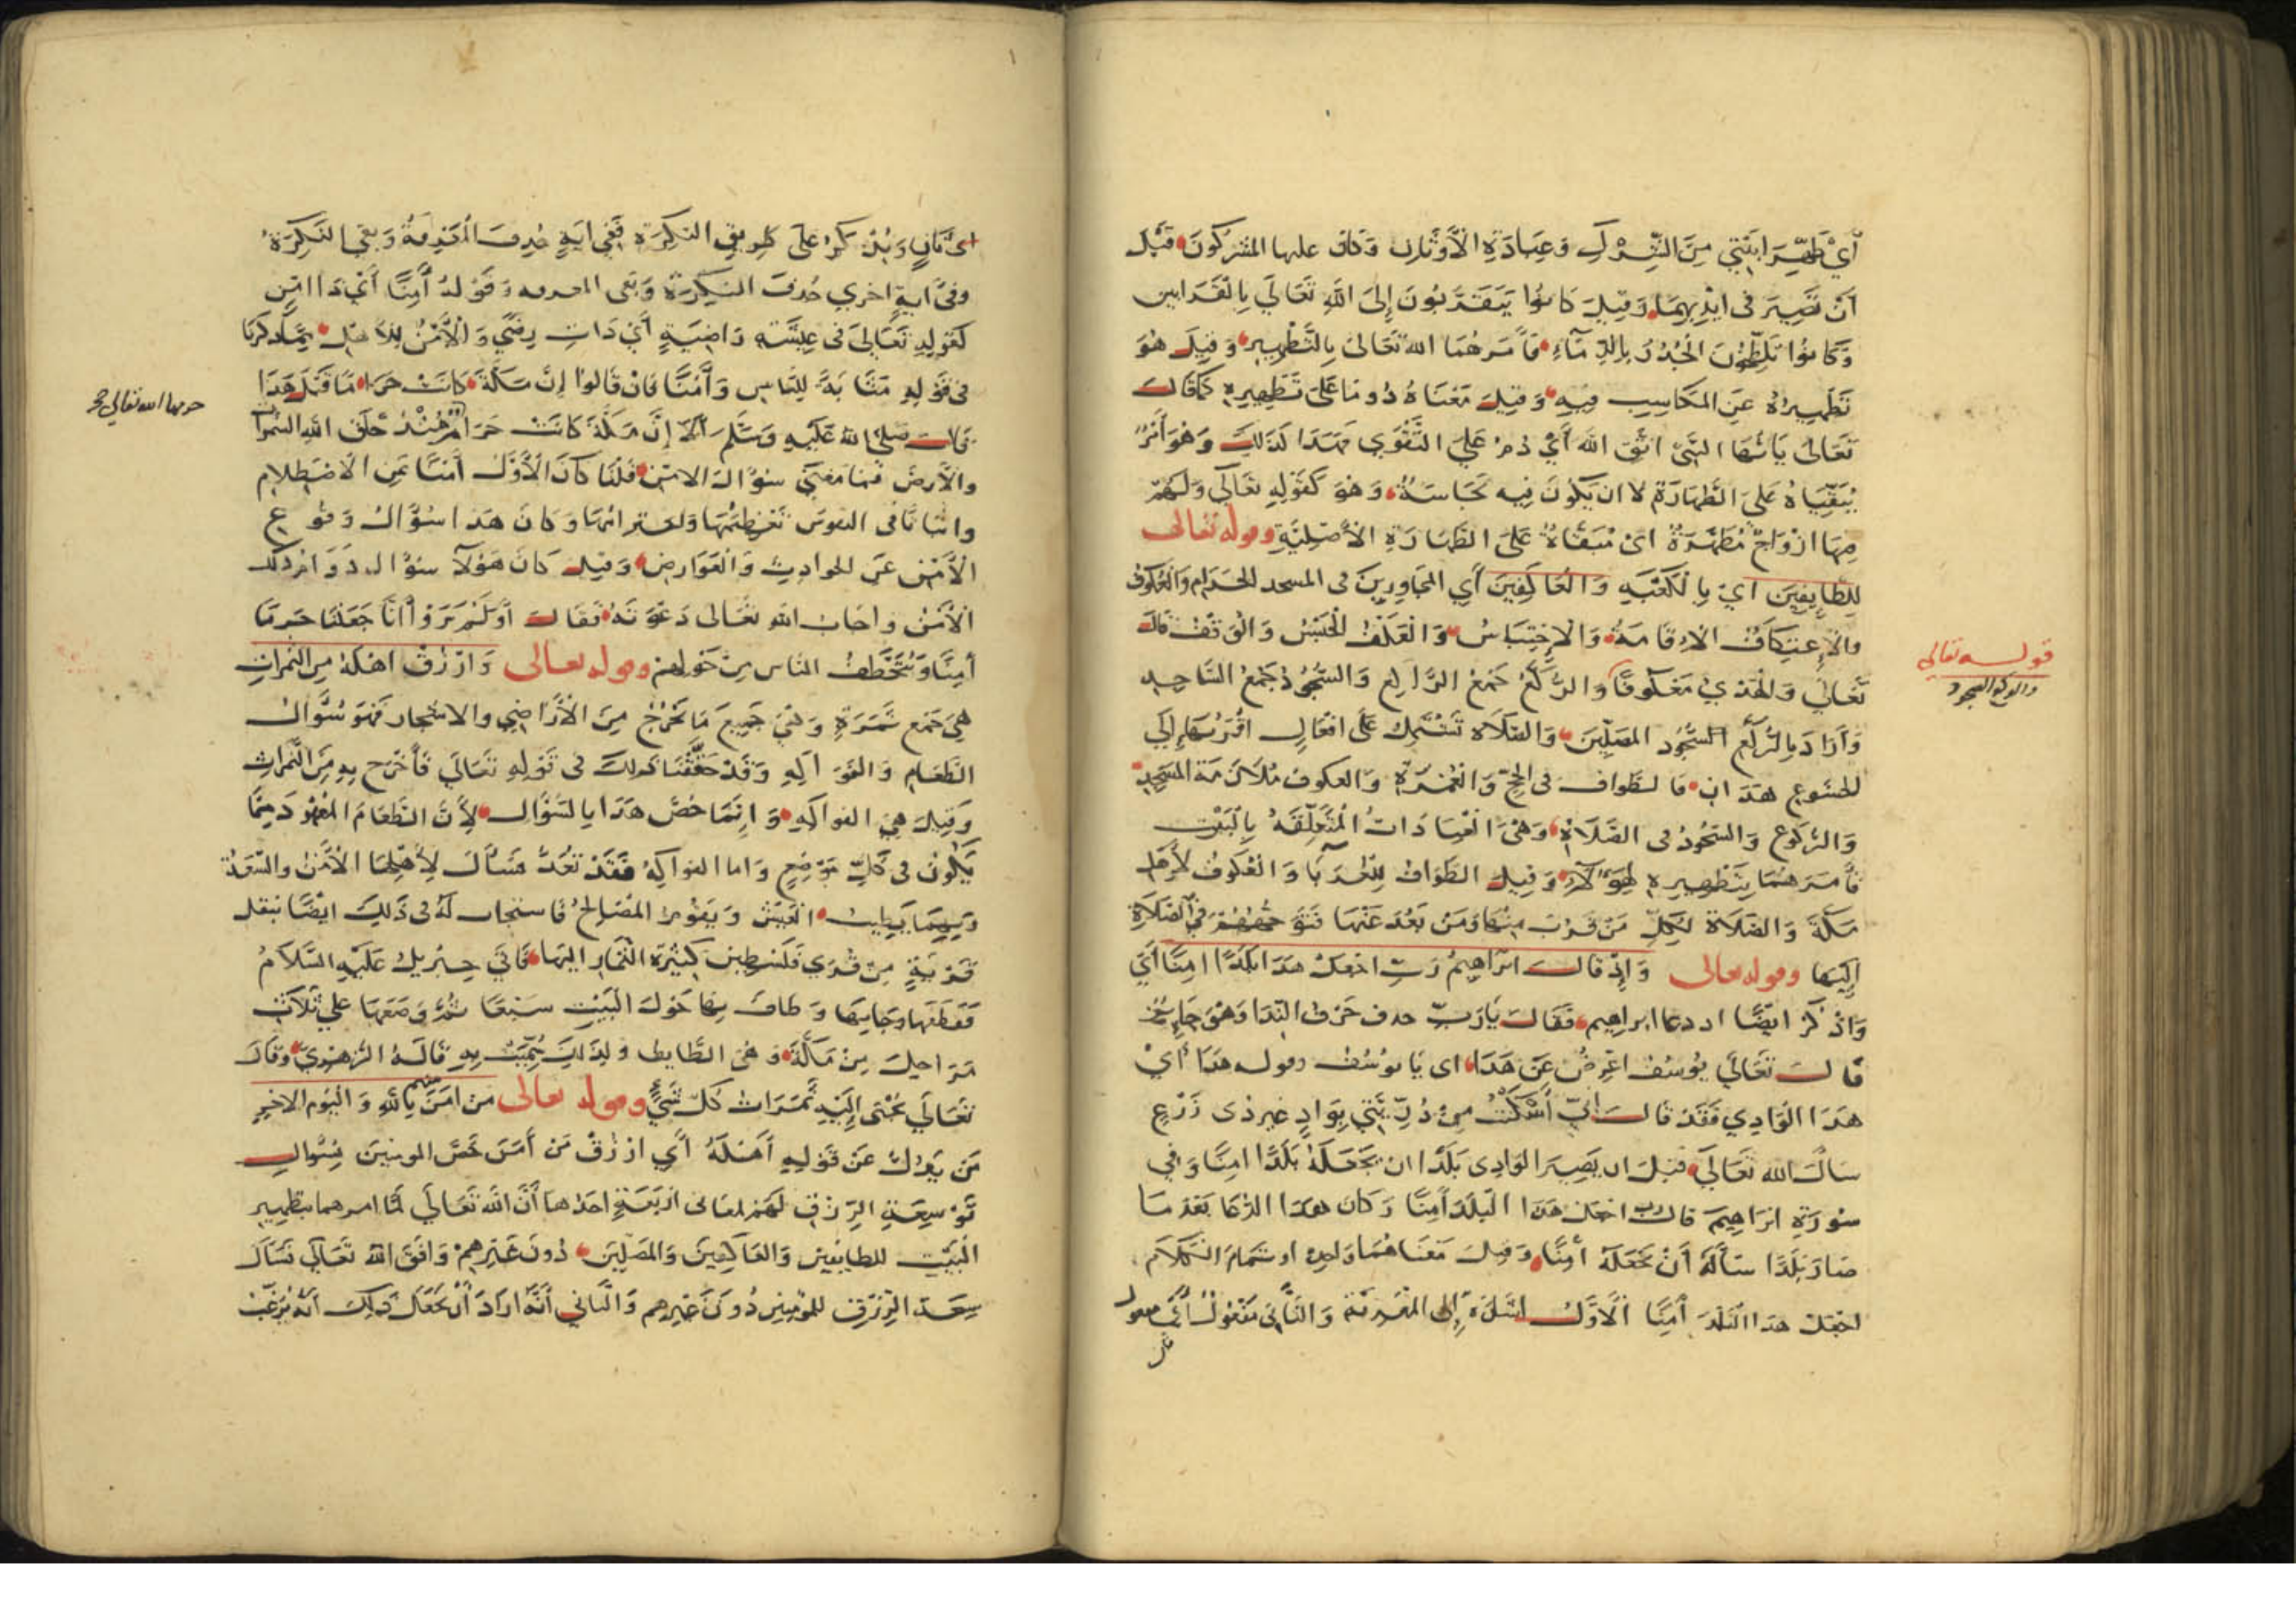 أي طهرا بيتي من الشرك وعبادة الأوثان وكان عليها المشركون قبل
أن تصير في أيديهما وقيل كانوا يتقربون إلى الله تعالى بالقرابين
وكانوا يلطخون الجدر بالدماء فأمرهما الله تعالى بالتطهير وقيل هو
تطهيره عن المكاسب فيه وقيل معناه دوما على تطهيره كما قال
تعالى يا أيها النبي اتق الله أي دم على التقوى فهذا كذلك وهو أمر
بتبقياه على الطهارة لا ان يكون فيه نجاسة وهو كقوله تعالى ولهم
فيها ازواج مطهرة اي مبقاة على الطهارة الأصلية وقوله تعالى
للطايفين أي بالكعبة والعاكفين أي المجاورين في المسجد الحرام والعكوف
والاعتكاف الإقامة والاحتباس والعكف الحبس والوقف قال
تعالى والهدي معكوفا والركع جمع الراكع والسجود جمع الساجد
قوله تعالى
والركع السجود
وأراد بالركع السجود المصلين والصلاة تشتمل على افعال اقربها إلى
الخشوع هذان فالطواف في الحج والعمرة والعكوف ملازمة المسجد
والركوع والسجود في الصلاة وهي العبادات المتعلقة بالبيت
فأمرهما بتطهيره لهؤلاء وقيل الطواف للغربا والعكوف لأهل
مكة والصلاة لكل من قرب منها ومن بعد عنها فتوجههم في الصلاة
إليها وقوله تعالى وإذ قال ابراهيم رب اجعل هذا بلدا امنا أي
واذكر ايضا اذ دعا ابراهيم فقال يا رب حذف حرف الندا وهو جايز
قال تعالى يوسف اعرض عن هذا اى يا يوسف وقوله هذا أي
هذا الوادي فقد قال إني أسكنت من ذريتي بواد غير ذى زرع
سال الله تعالى قبل ان يصير الوادى بلدا ان يجعله بلدا امنا وفي
سورة ابراهيم قال رب اجعل هذا البلد آمنا وكان هذا الدعا بعد ما
صار بلدا سأله أن يجعله أمنا وقيل معناهما واحد وتمام الكلام
اجعل هذا البلد آمنا الأول إشارة إلى المعرفة والثاني مفعول أي مفعول
ثان
اى ثان وذكر على طريق النكرة ففي اية حذف المعرفة وبقى النكرة
وفي اية اخرى حذف النكرة وبقى المعرفه وقوله أمنا أي ذا امن
كقوله تعالى في عيشة راضية أي ذات رضى والأمن للأهل كما ذكرنا
في قوله مثابة للناس وأمنا فان قالوا إن مكة كانت حراما قبل هذا
قال صلى الله عليه وسلم ألا إن مكة كانت حراما منذ خلق الله السموات
حرمها الله تعالى صح
والأرض فما معنى سؤاله الامن قلنا كان الأول أمنا عن الاصطلام
واثباتا في النفوس تعظيمها واحترامها وكان هذا سؤال وقوع
الأمن عن الحوادث والعوارض وقيل كان هؤلا سؤال دوام ذلك
الأمن واجاب الله تعالى دعوته فقال أولم يروا أنا جعلنا حرما
أمنا ويتخطف الناس من حولهم وقوله تعالى وارزق اهله من الثمرات
هي جمع ثمرة وهي جميع ما يخرج من الأراضي والاشجار فهو سؤال
الطعام والفواكه وقد حققنا ذلك في قوله تعالى فأخرج به من الثمرات
وقيل هي الفواكه وانما خص هذا بالسؤال لأن الطعام المعهود مما
يكون في كل موضع واما الفواكه فقد تعد فسأل لأهلها الأمن والسعة
وبهما يطيب العيش ويقوم المصالح فاستجاب له في ذلك ايضا بنقل
قرية من قرى فلسطين كثيرة الثمار اليها فاتى جبريل عليه السلام
فقطعها وجا بها وطاف بها حول البيت سبعا ثم وضعها على ثلاث
مراحل من مكة وهي الطايف ولذلك سميت به قاله الزهري وقال
تعالى يجبى إليه ثمرات كل شيء وقوله تعالى من امن منهم بالله واليوم الاخر
من بدل عن قوله أهله أي ارزق من أمن خص المومنين بسؤال
توسعة الرزق لهم لمعانى اربعة احدها أن الله تعالى لما امرهما بتطهير
البيت للطايفين والعاكفين والمصلين دون غيرهم وافق الله تعالى فسأل
سعة الرزق للمؤمنين دون غيرهم والثاني أنه اراد أن يجعل ذلك انه يرغب